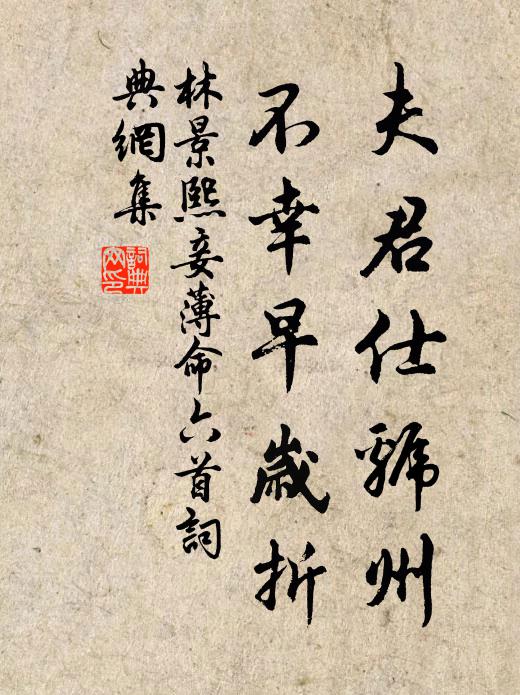 夫君仕虢州
不幸早歲折
林景熙妾薄命六首詞
典網集
詞典網印